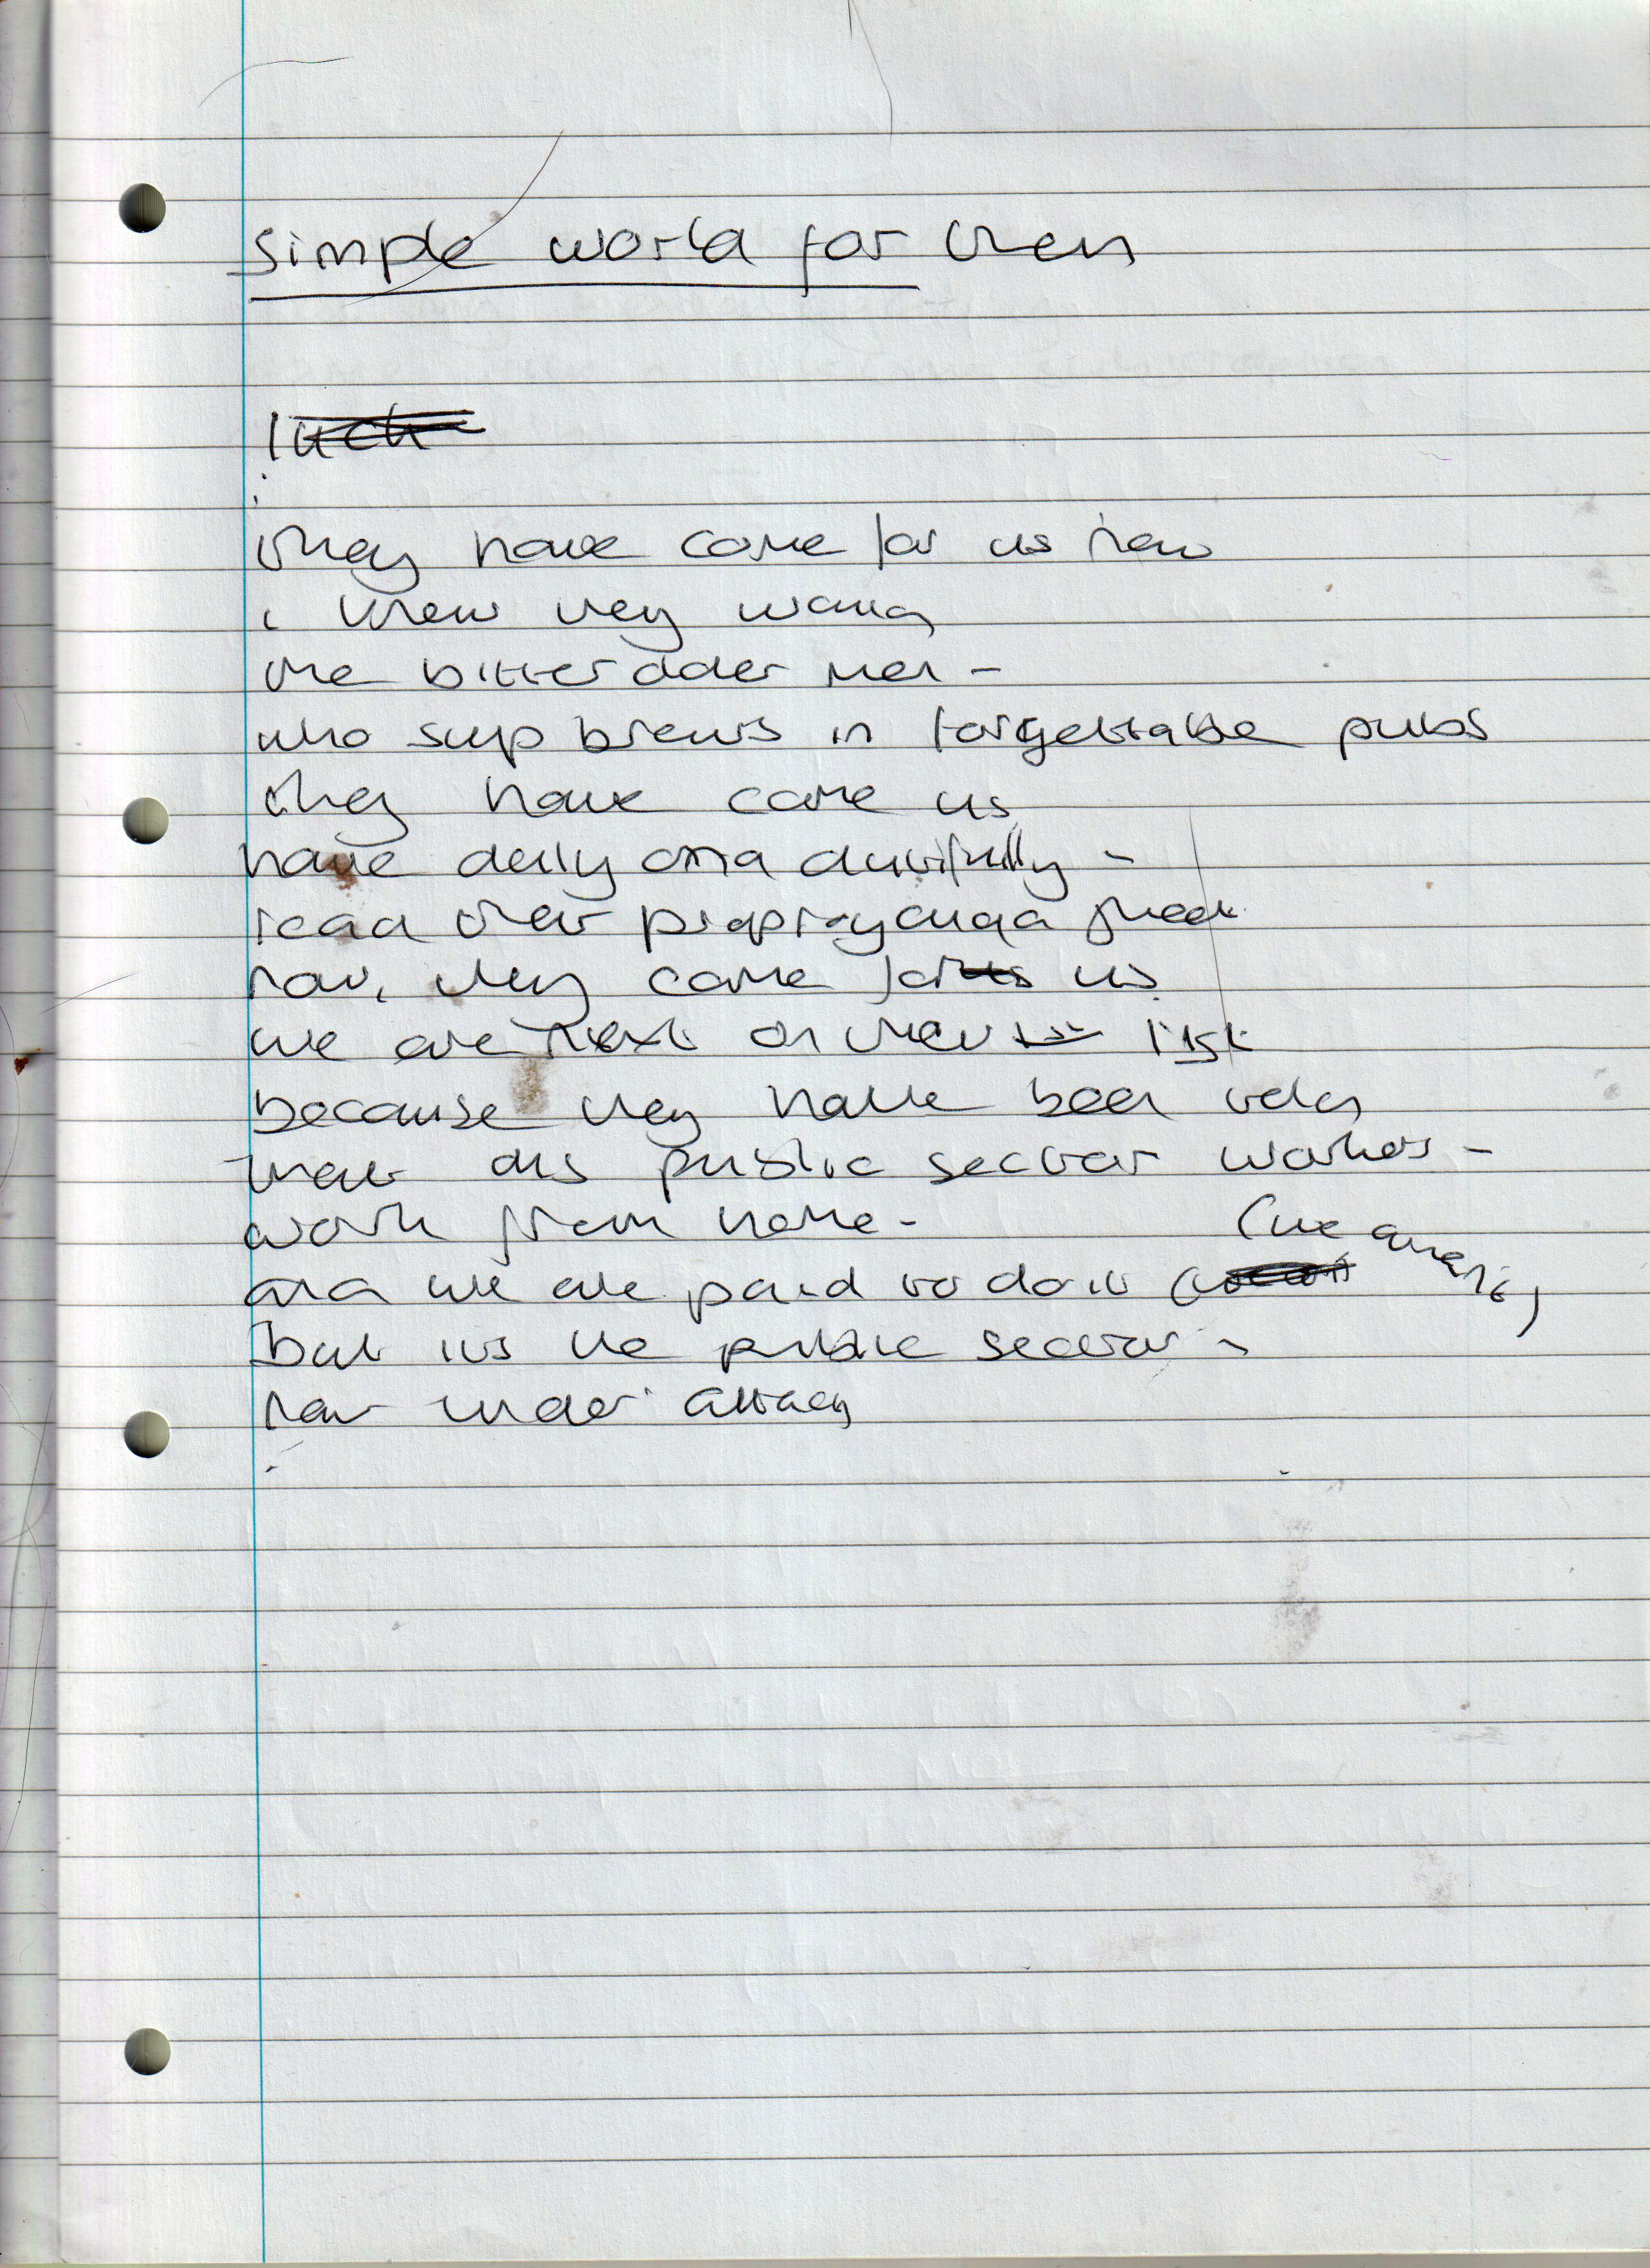 simple world for them
they have come for us now
i knew they would
the bitter older men -
who sup brews in forgettable pubs
they have come us
have daily and dutifully -
read their propraganda sheet
now, they come for us
we are next on their list
because they have been told
that all public sector workers -
work from home -
and we are paid to do it (we aren't)
but its the public sector -
now under attack